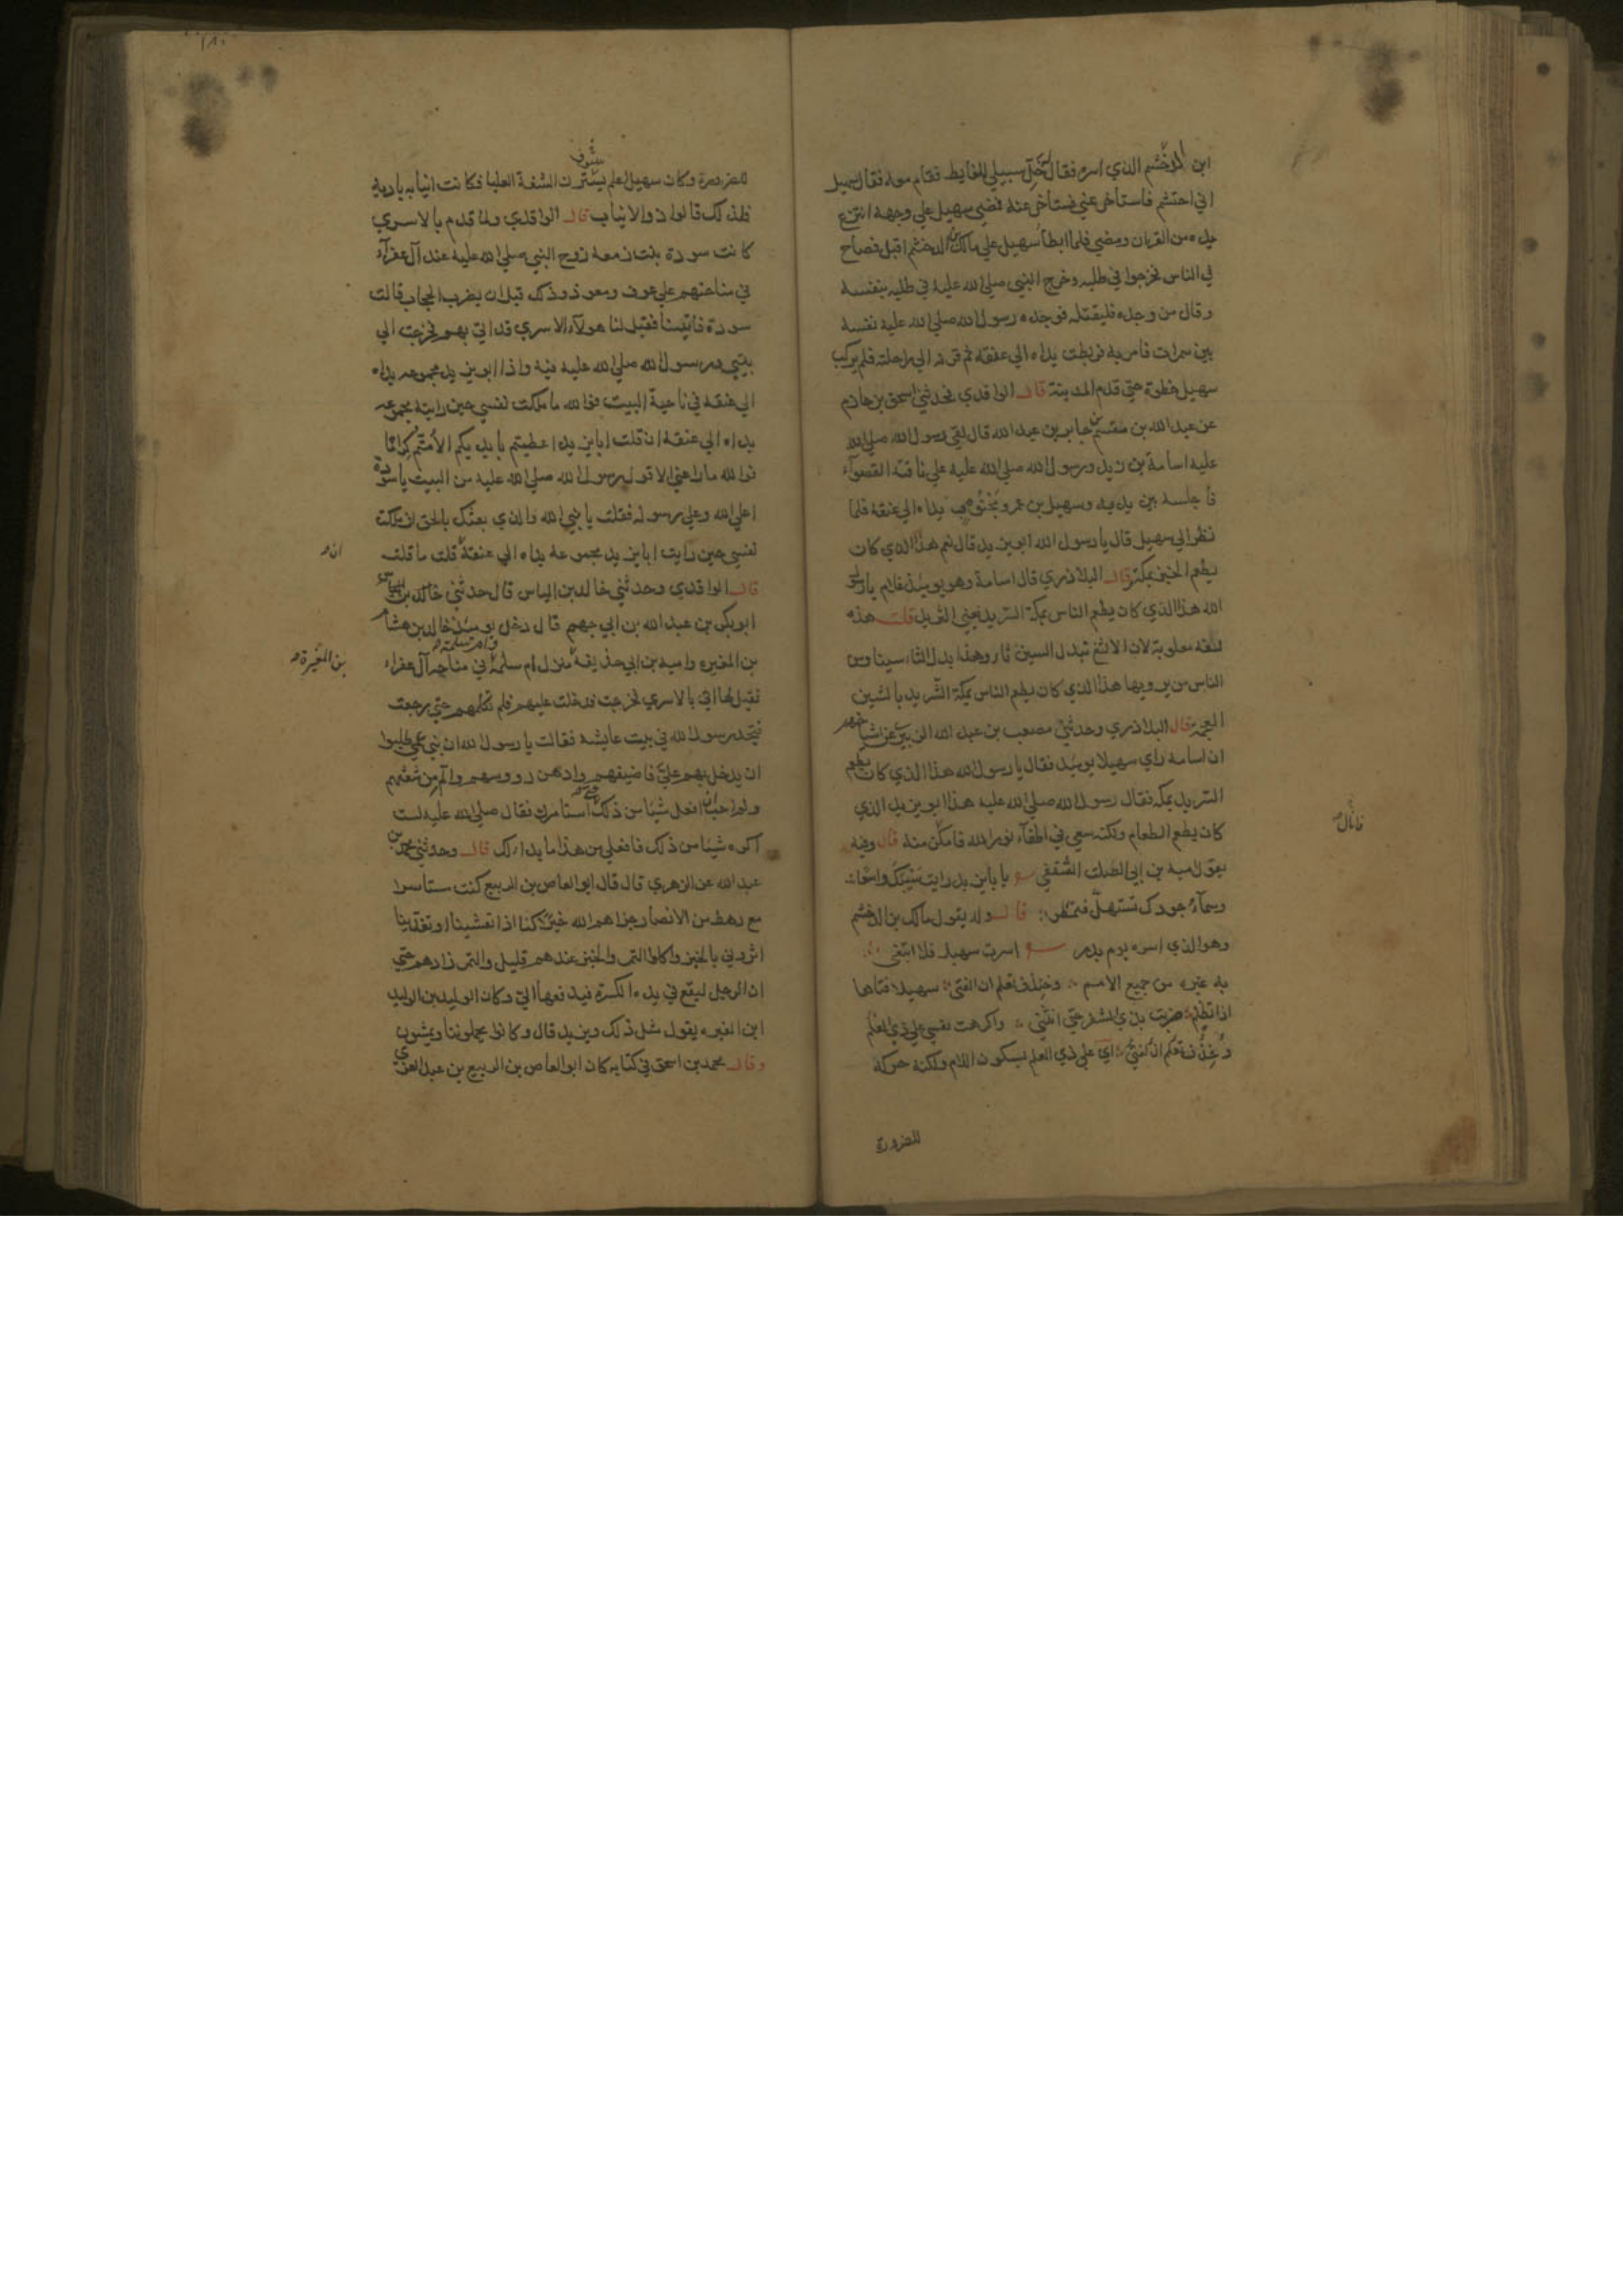 ابن الدخشم الذي اسره فقال خل سبيلي للغايط فقام معه فقال سهيل
اني احتشم فاستأخر عني فستأخر عنه فمضي سهيل علي وجهه انتزع
يده من القران ومضي فلما ابطأ سهيل علي مالك بن الدخشم اقبل فصاح
في الناس فخرجوا في طلبه وخرج النبي صلي الله عليه في طلبه بنفسه
وقال من وجده فليقتله فوجده رسول الله صلي الله عليه نفسه
بين سمرات فامر به فربطت يداه الي عنقه ثم قرنه الي راحلته فلم يركب
سهيل خطوة حتي قدم المدينة قال الواقدي فحدثني اسحق بن حازم
عن عبد الله بن مقسم عن جابر بن عبد الله قال لقي رسول الله صلي الله
عليه اسامة بن زيد ورسول الله صلي الله عليه علي ناقته القصوآء
فأجلسه بين يديه وسهيل بن عمرو مجنوب يداه الي عنقه فلما
نظر الي سهيل قال يا رسول الله ابو يزيد قال نعم هذا الذي كان
يطعم الخبز بمكة قال البلاذري قال اسامة وهو يوميذ غلام يا رسول
الله هذا الذي كان يطعم الناس بمكة السريد يعني الثريد قلت هذه
لثغه مقلوبة لان الالثغ تبدل السين ثاء وهذا بدل الثاء سينا ومن
الناس من يرويها هذا الذي كان يطعم الناس بمكة الشريد بالشين
المعجمة قال البلاذري وحدثني مصعب بن عبد الله الزبيري عن اشياخهم
ان اسامه راي سهيلا يوميذ فقال يا رسول الله هذا الذي كان يطعم
السريد بمكة فقال رسول الله صلي الله عليه هذا ابو يزيد الذي
كان يطعم الطعام ولكنه سعي في اطفآء نور الله فامكن منه قال وفيه
يقول امية بن ابي الصلت الثقفي يا بايزيد رايت سيبك واسعا
وسمآء جودك تستهل فتمطر قال وله يقول مالك بن الدخشم
وهو الذي اسره يوم بدر اسرت سهيلا فلا ابتغي
به غيره من جميع الامم وخندف تعلم ان الفتى سهيلا فتاها
اذا تظلم ضربت بذي الشفر حتي انثني واكرهت نفسي علي ذي العلم
اي علي ذي العلم بسكون اللام ولكنه حركه
للضرورة
فاتال
للضرورة وكان سهيل اعلم مشقوق الشفة العليا فكانت انيابه باديه
فلذلك قالوا ذو الانياب قال الواقدي ولما قدم بالاسري
كانت سودة بنت زمعه زوج النبي صلي الله عليه عند آل عفرآء
في مناحتهم علي عوف ومعوذ وذلك قبل ان يضرب الحجاب قالت
سودة فأتينا فقيل لنا هولآء الاسري قد اتي بهم فخرجت الي
بيتي ورسول الله صلي الله عليه فيه واذا ابو يزيد مجموعه يداه
الي عنقه في ناحية البيت فوالله ما ملكت نفسي حين رايته مجموعه
يداه الي عنقه ان قلت ابا يزيد اعطيتم بأيديكم الا متم كراما
فوالله ما راعني الا قول رسول الله صلي الله عليه من البيت يا سودة
اعلي الله وعلي رسوله فقلت يا نبي الله والذي بعثك بالحق ان ملكت
ان
نفسي حين رايت ابا يزيد مجموعة يداه الي عنقه قلت ما قلت
قال الواقدي وحدثني خالد بن الياس قال حدثني
ابو بكر بن عبد الله بن ابي جهم قال دخل يوميذ خالد بن هشام
بن المغيرة
بن المغيره واميه بن ابي حذيفه منزل ام سلمه وام سلمة في مناحه آل عفراء
فقيل لها اتي بالاسري فخرجت فدخلت عليهم فلم تكلمهم حتي رجعت
فتجد رسول الله في بيت عايشه فقالت يا رسول الله ان بني عمي طلبوا
ان يدخل بهم علي فاضيفهم وادهن رووسهم والم من شعثهم
ولم احب ان افعل شيئا من ذلك حتي استامرك فقال صلي الله عليه لست
اكره شيئا من ذلك فافعلي من هذا ما بدا لك قال وحدثني محمد بن
عبد الله عن الزهري قال قال ابو العاص بن الربيع كنت مستأسرا
مع رهط من الانصار جزاهم الله خيرا كنا اذا تعشينا او تغدينا
اثروني بالخبز واكلوا التمر والخبز عندهم قليل والتمر زادهم حتي
ان الرجل ليقع في يده الكسرة فيدفعها الي وكان الوليد بن الوليد
ابن المغيره يقول مثل ذلك ويزيد قال وكانوا يحملوننا ويمشون
وقال محمد بن اسحق في كتابه كان ابو العاص بن الربيع بن عبد العزي